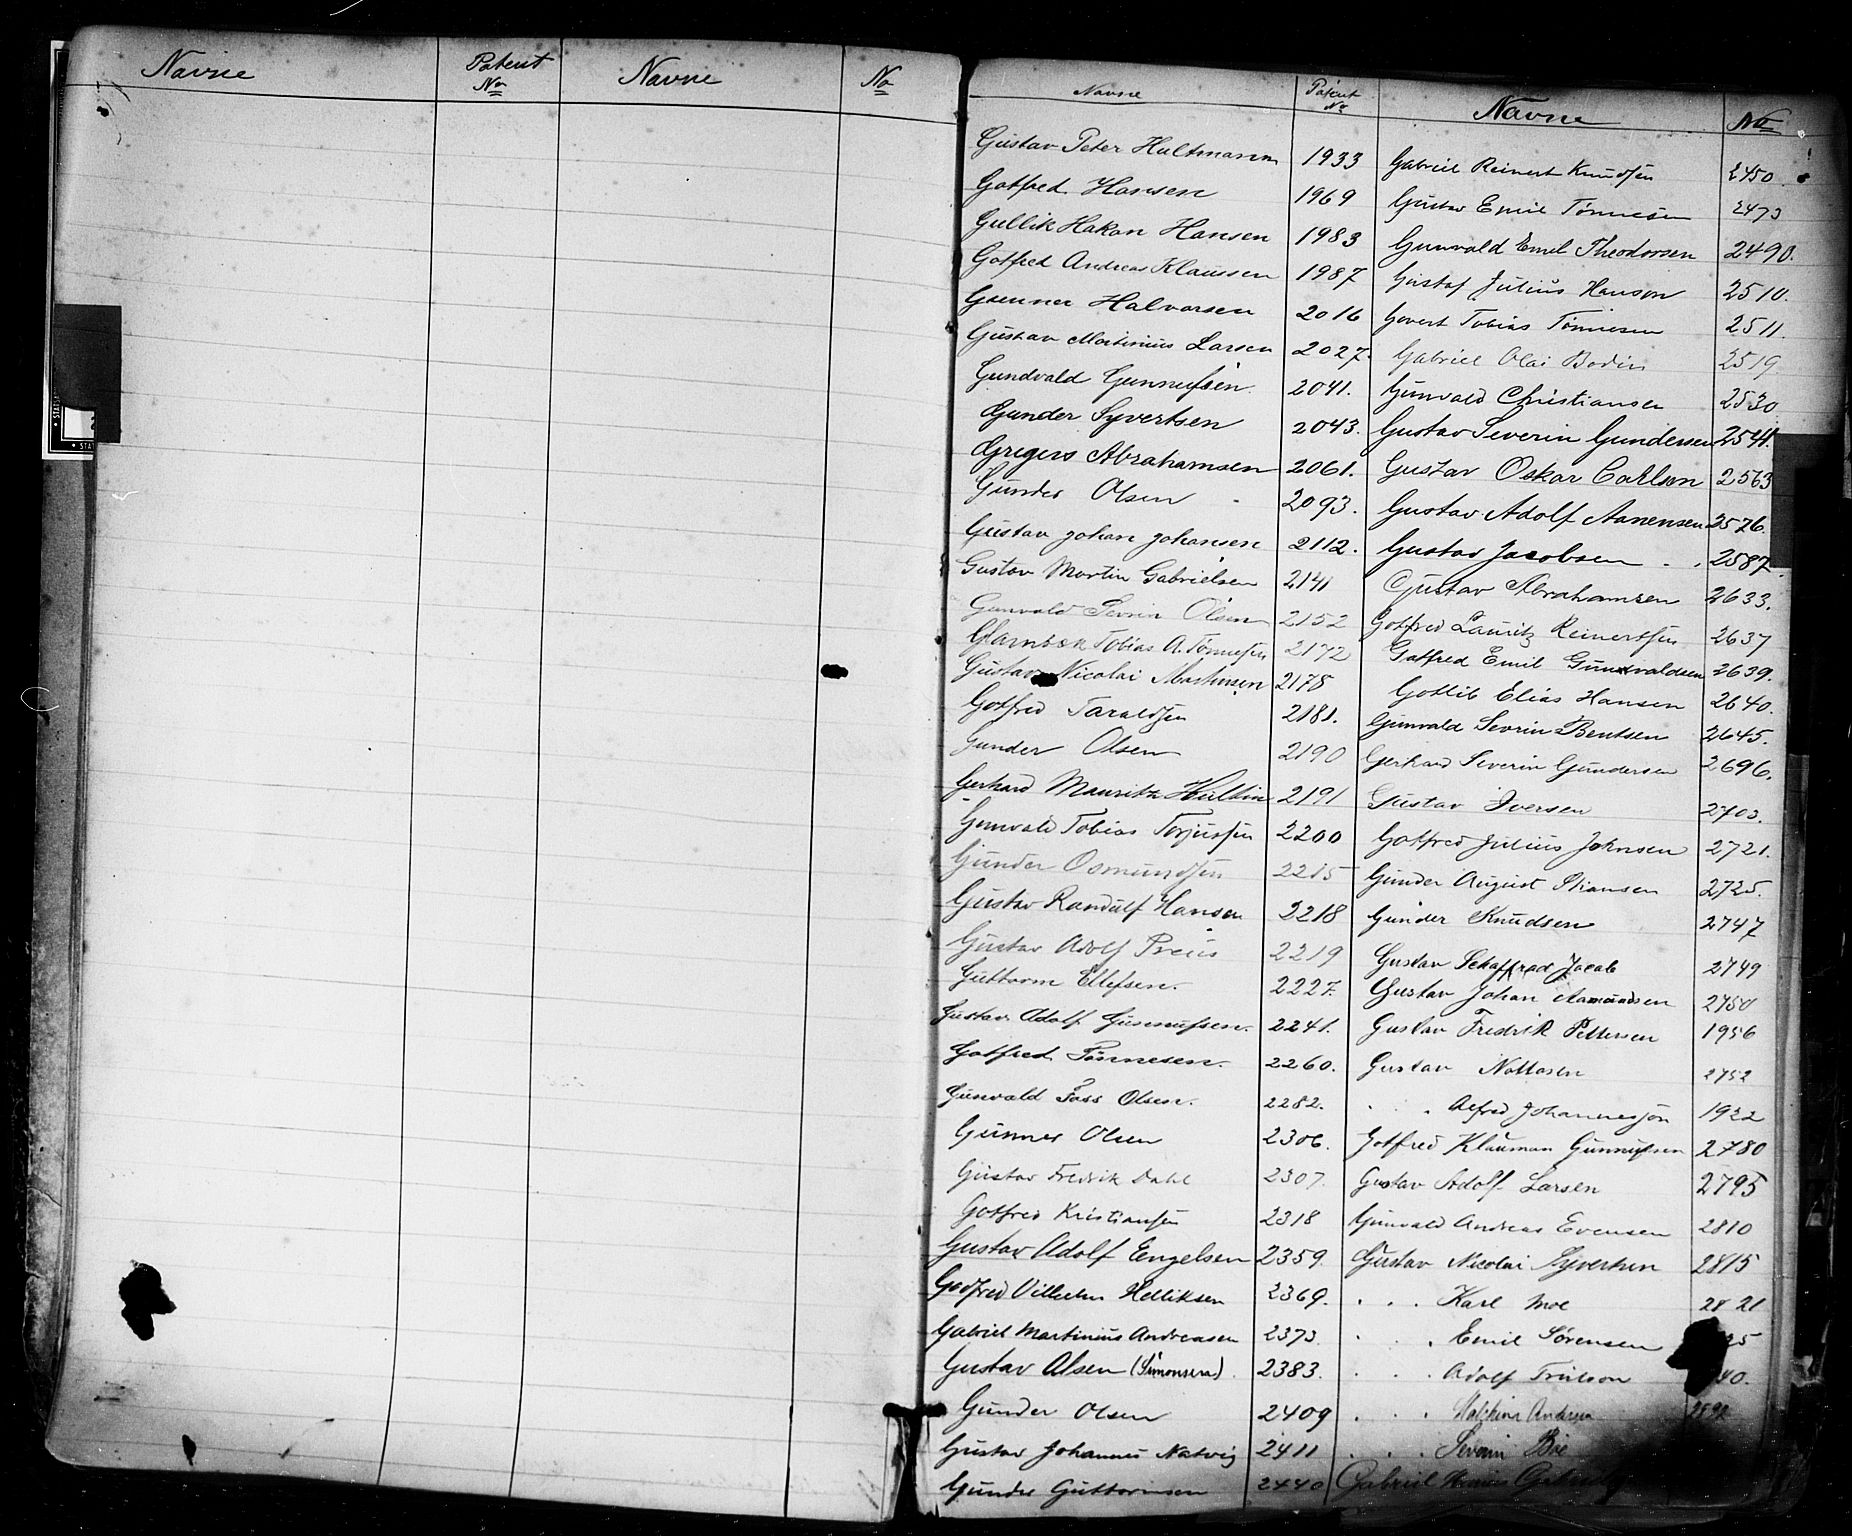 Navne Patent No Navne No
Navne Patent No Navne No
Gustav Peter Hultmann 1933
Gotfred Hansen 1969
Gullik Hakon Hansen 1983
Gotfred Andreas Klaussen 1987
Gunner Halvorsen 2016
Gustav Martinius Larsen 2027.
Gundvald Gunnufsen 2041.
Gunder Syvertsen 2043.
Gregers Abrahamsen 2061.
Gunder Olsen 2093.
Gustav Johan Johansen 2112.
Gustav Martin Gabrielsen 2141
Gunvald Sevrin Olsen 2152
Tobias A. Tønnesen 2172
Gustav Nicolai Mathisen 2178
Gotfred Taraldsen 2181.
Gunder Olsen 2190
Gerhard Mauritz Hultin 2191
Gunvald Tobias Torjussen 2200
Gunder Osmundsen 2215
Gustav Randulf Hansen 2218
Gustav Adolf Preus 2219
Guttorm Ellefsen. 2227.
Gustav Adolf Gunnufsen. 2241.
Gotfred Tønnesen. 2260.
Gunvald Foss Olsen. 2282.
Gunner Olsen 2306.
Gustav Fredrik Dahl 2307.
Gotfred Kristiansen 2318
Gustav Adolf Engelsen 2359.
Godfred Vilhelm Helliksen 2369.
Gabriel Martinius Andreasen 2373
Gustav Olsen (Simonsen). 2383.
Gunder Olsen 2409
Gustav Johannes Natvig 2411
Gunder Guttormsen 2440
Gabriel Reinert Knudsen 2450
Gustav Emil Tønnesen 2473
Gunvald Emil Theodorsen 2490.
Gustaf Julius Hanson 2510.
Govert Tobias Tønnesen 2511.
Gabriel Olai Bodin 2519
Gunvald Christiansen 2530
Gustav Severin Gundersen 2541.
Gustav Oskar Carlson 2563
Gustav Adolf Aanensen 2576.
Gustav Jacobsen 2587.
Gustav Abrahamsen 2633.
Gotfred Lauritz Reinertsen 2637
Gotfred Emil Gundvaldsen 2639.
Gotlib Elias Hansen 2640.
Gunvald Sevrin Bentsen 2645.
Gerhard Severin Gundersen 2696.
Gustav Iversen 2703.
Gotfred Julius Johnsen 2721.
Gunder August Stiansen 2725.
Gunder Knudsen 2747
Gustav Jacob 2749
Gustav Johan Aamundsen 2750
Gustav Fredrik Pettersen 1956
Gustav Nottosen 2752
" " Alfred Johannesson 1922
Gotfred Klauman Gunnufsen 2780
Gustav Adolf Larsen 2795
Gunvald Andreas Evensen 2810
Gustav Nicolai Syvertsen 2815
. . . Karl Moe 2821
. . . Emil Sørensen 25
. . . Adolf Trulson 40.
. . .
. . . Severin Boe
Gabriel